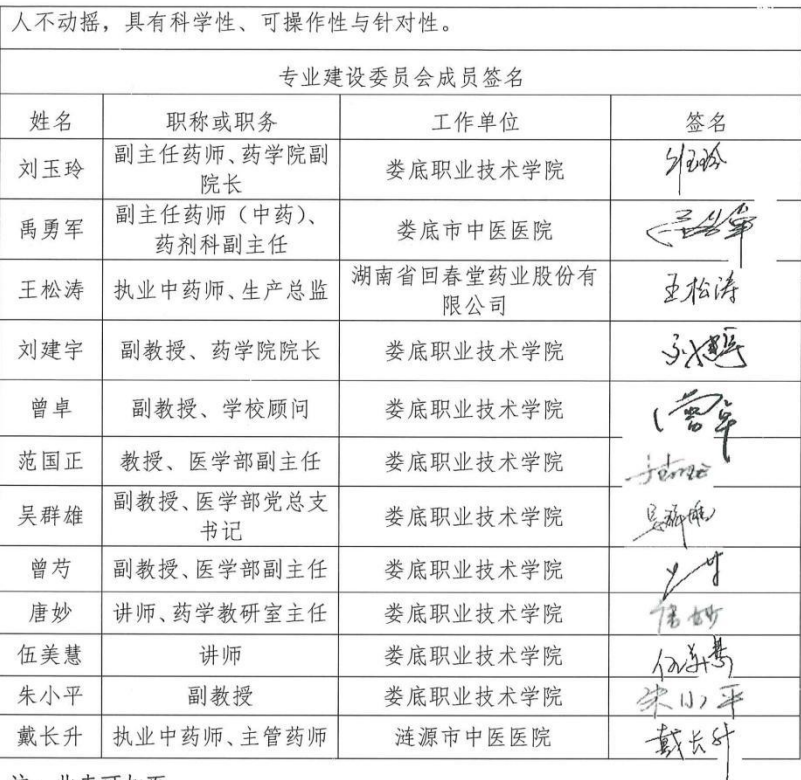 人不动摇，具有科学性、可操作性与针对性。
专业建设委员会成员签名
姓名 职称或职务 工作单位 签名
刘玉玲 副主任药师、药学院副 娄底职业技术学院 刘玉玲
院长
禹勇军 副主任药师（中药）、 娄底市中医医院
药剂科副主任
王松涛 执业中药师、生产总监 湖南省回春堂药业股份有 王松涛
限公司
刘建宇 副教授、药学院院长 娄底职业技术学院
曾卓 副教授、学校顾问 娄底职业技术学院 曾卓
范国正 教授、医学部副主任 娄底职业技术学院
吴群雄 副教授、医学部党总支 娄底职业技术学院
书记
曾芍 副教授、医学部副主任 娄底职业技术学院
唐妙 讲师、药学教研室主任 娄底职业技术学院 唐妙
伍美慧 讲师 娄底职业技术学院 伍美慧
朱小平 副教授 娄底职业技术学院 朱小平
戴长升 执业中药师、主管药师 涟源市中医医院 戴长升